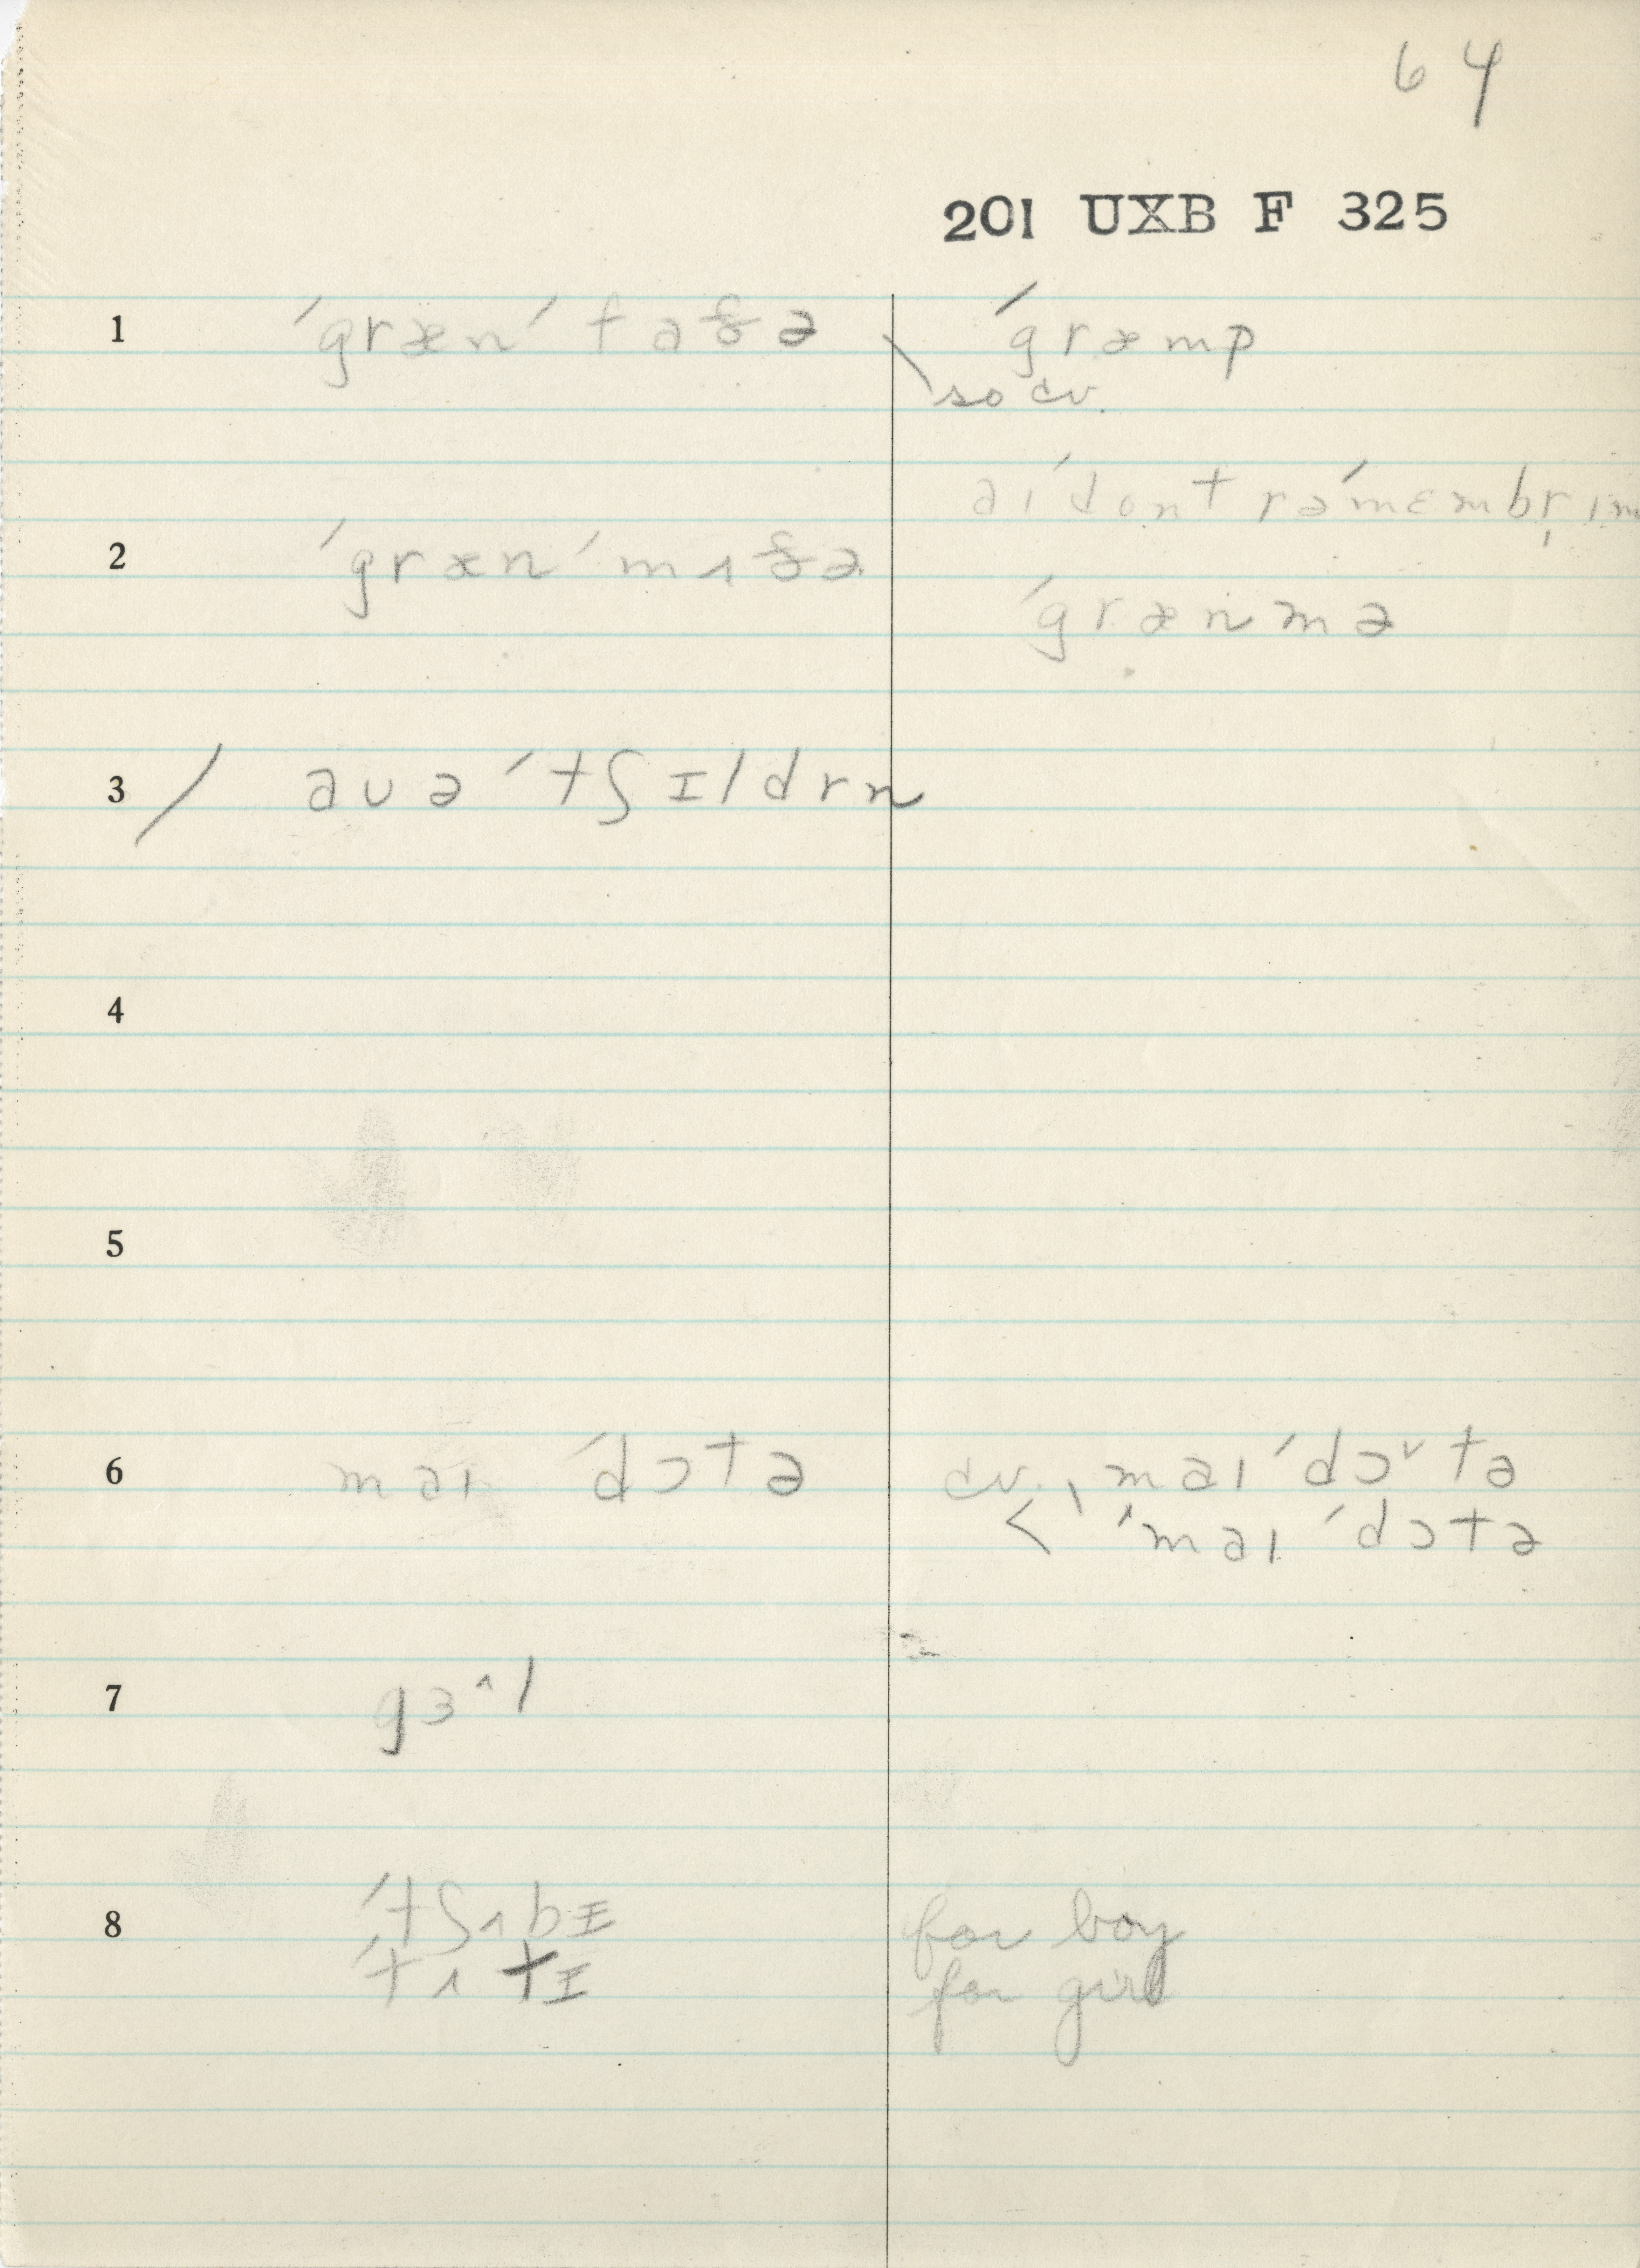 64
201 UXB F 325
1 ´græn´faðə ´græmp
so cv.
aı´dont rə´mɛmbr̩ ım
2 ´græn´mʌðə
´grænmə
3 / aʊə´tʃɪldrn
4
5
6 maı ´dɔtə cv. maı´dɔ˅tə
< ´maı ´dɔtə
7 gɜ^l
8 ´tʃʌbɪ for boy
´tʌtɪ for girl